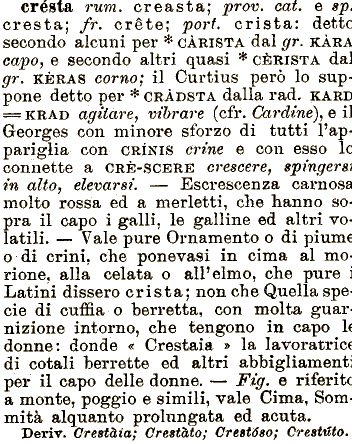 crésta rum. creasta; prov. cat. e sp.
cresta; fr. crête; port. crista: detto
secondo alcuni per * CÀRISTA dal gr. KÀRA
capo, e secondo altri quasi * CÈRISTA dal
gr. KÈRAS corno; il Curtius però lo sup-
pone detto per * CRÀDSTA dalla rad. KARD
= KRAD agitare, vibrare (cfr. Cardine), e il
Georges con minore sforzo di tutti l'ap-
pariglia con CRÌNIS crine e con esso lo
connette a CRÈ-SCERE crescere, spingersi
in alto, elevarsi. — Escrescenza carnosa
molto rossa ed a merletti, che hanno so-
pra il capo i galli, le galline ed altri vo-
latili. — Vale pure Ornamento o di piume
o di crini, che ponevasi in cima al mo-
rione, alla celata o all'elmo, che pure i
Latini dissero crista; non che Quella spe-
cie di cuffia o berretta, con molta guar-
nizione intorno, che tengono in capo le
donne: donde « Crestaia » la lavoratrice
di cotali berrette ed altri abbigliamenti
per il capo delle donne. — Fig. e riferito
a monte, poggio e simili, vale Cima, Som-
mità alquanto prolungata ed acuta.
Deriv. Crestàia; Crestàto; Crestóso; Crestúto.